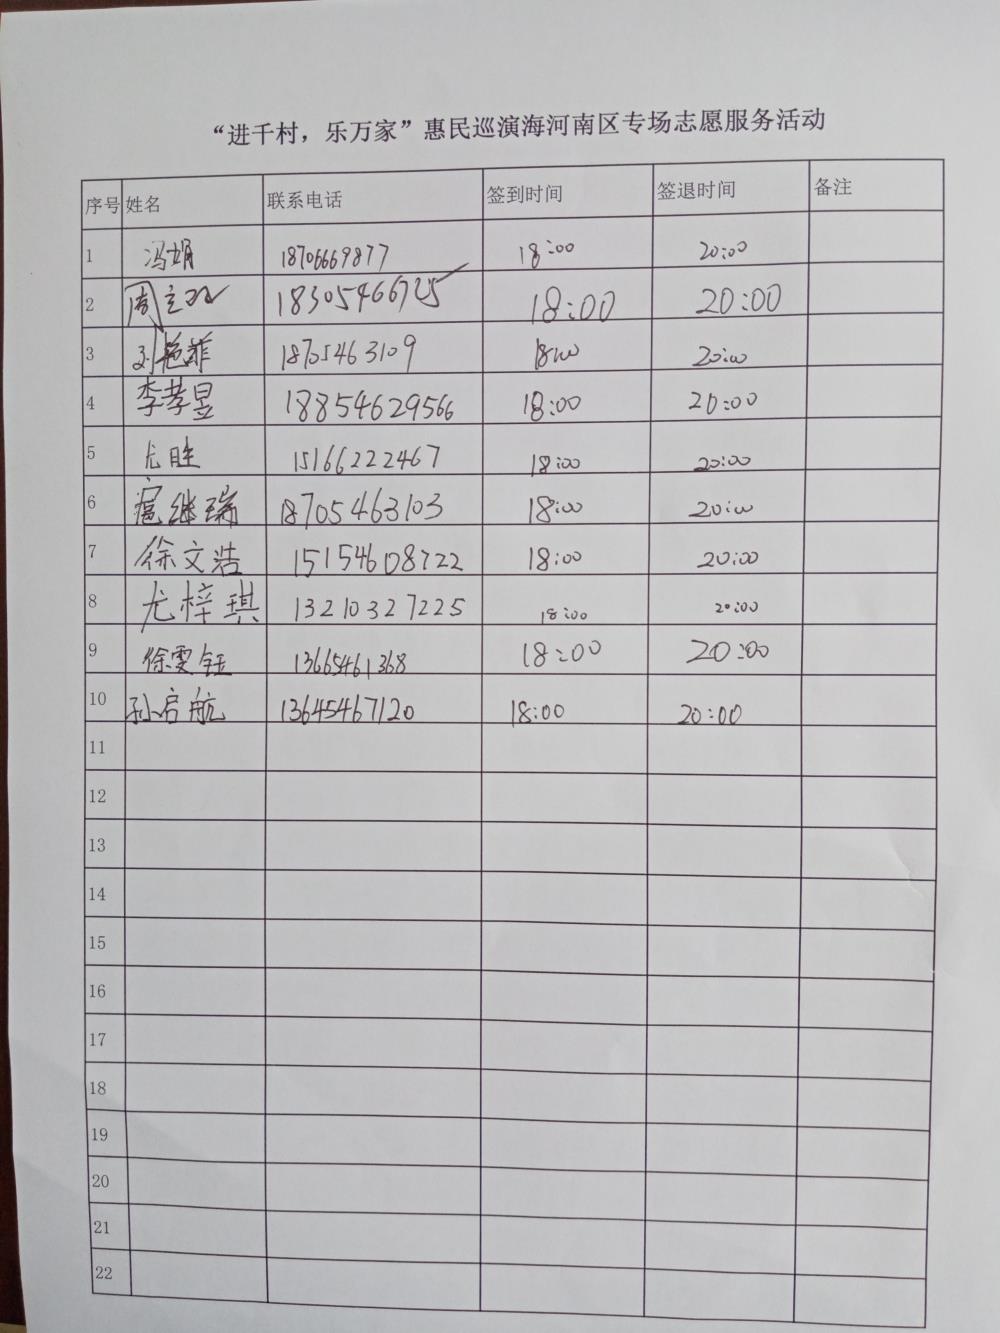 “进千村，乐万家”惠民巡演海河南区专场志愿服务活动
序号 姓名 联系电话 签到时间 签退时间 备注
1 冯娟 18706669877 18:00 20:00
2 周立 18305466725 18:00 20:00
3 刘艳菲 18705463109 18:00 20:00
4 李孝昱 18854629566 18:00 20:00
5 尤胜 15166222467 18:00 20:00
6 扈继瑞 18705463103 18:00 20:00
7 徐文浩 15154608722 18:00 20:00
8 尤梓琪 13210327225 18:00 20:00
9 徐雯钰 13665461368 18:00 20:00
10 孙启航 13645467120 18:00 20:00
11
12
13
14
15
16
17
18
19
20
21
22